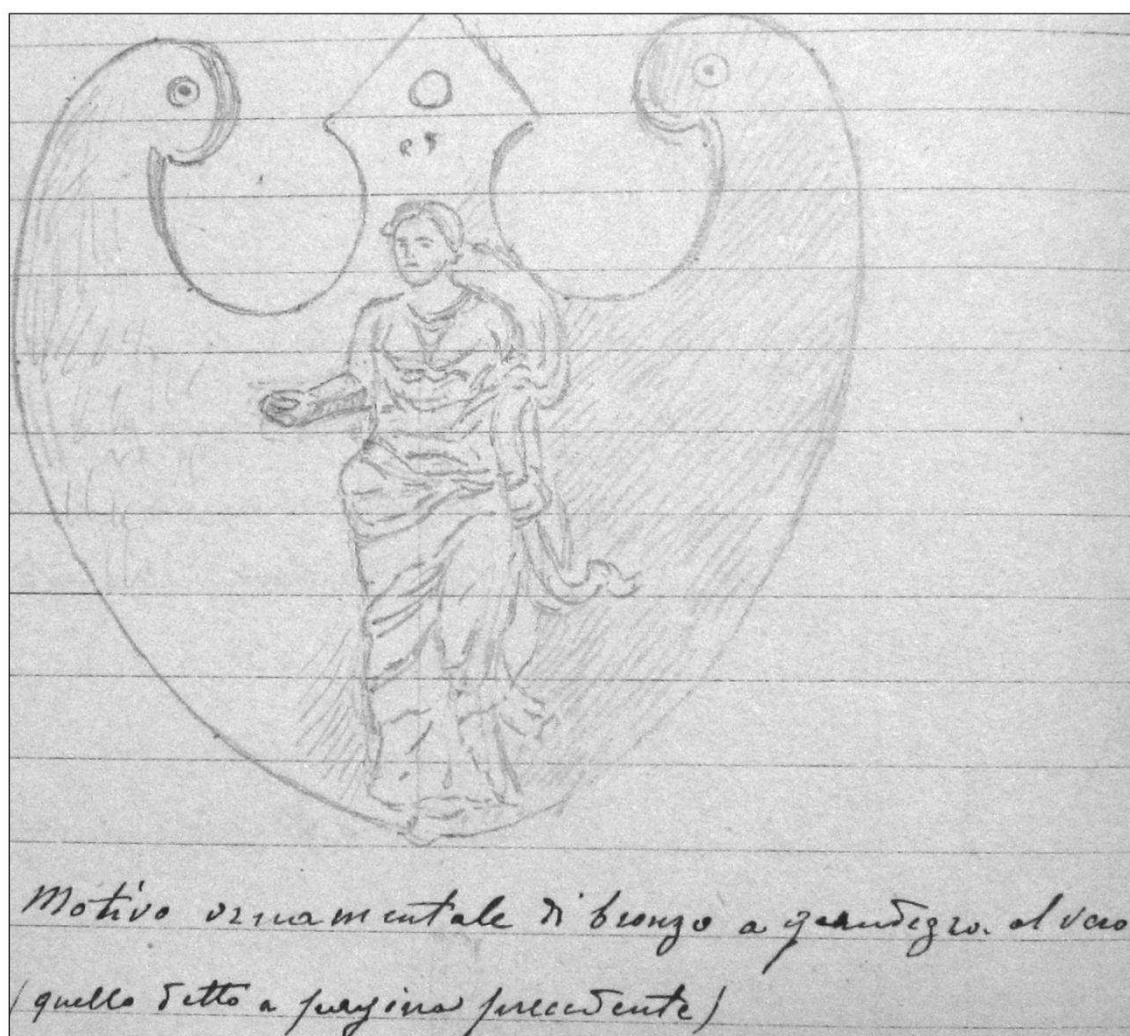 Motivo ornamentale di bronzo a grandezza al vero
(quello detto a pagina precedente)